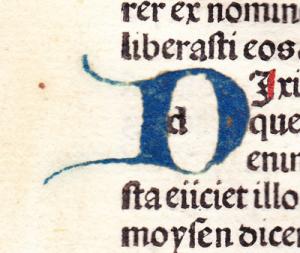 rer ex nomin
liberasti eos
D d Ixi
que
enim
sta eiiciet illo
moysen dicen